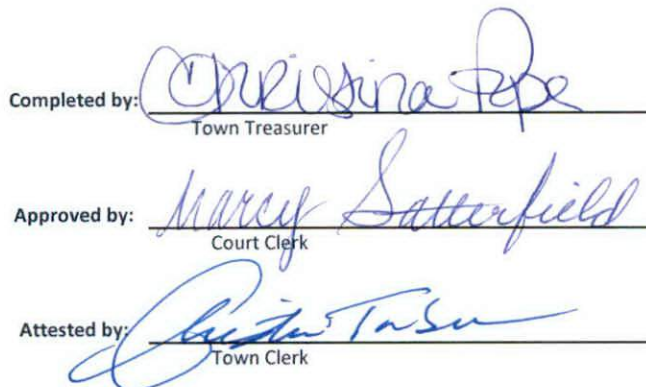 Completed by: Christina Pope
Town Treasurer
Approved by: Marcy Satterfield
Court Clerk
Attested by:
Town Clerk